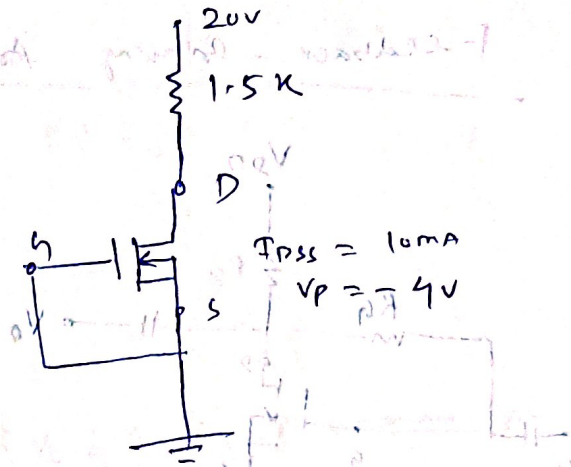 20V
1.5K
D
G
IDSS = 10mA
VP = - 4V
S